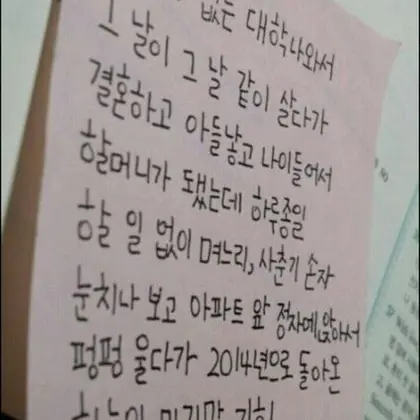 없는 대학나와서
그 날이 그 날 같이 살다가
결혼하고 아들낳고 나이들어서
할머니가 됐는데 하루종일
할 일 없이 며느리, 사춘기 손자
눈치나 보고 아파트 앞 정자에 앉아서
펑펑 울다가 2014년으로 돌아온
마지막 기회